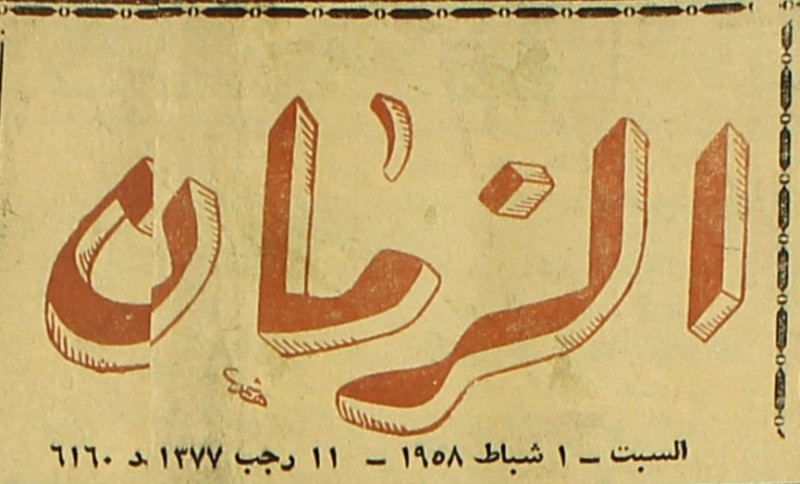 الزمان
السبت ـ ١ شباط ١٩٥٨ ـ ١١ رجب ١٣٧٧ د ٦١٦٠